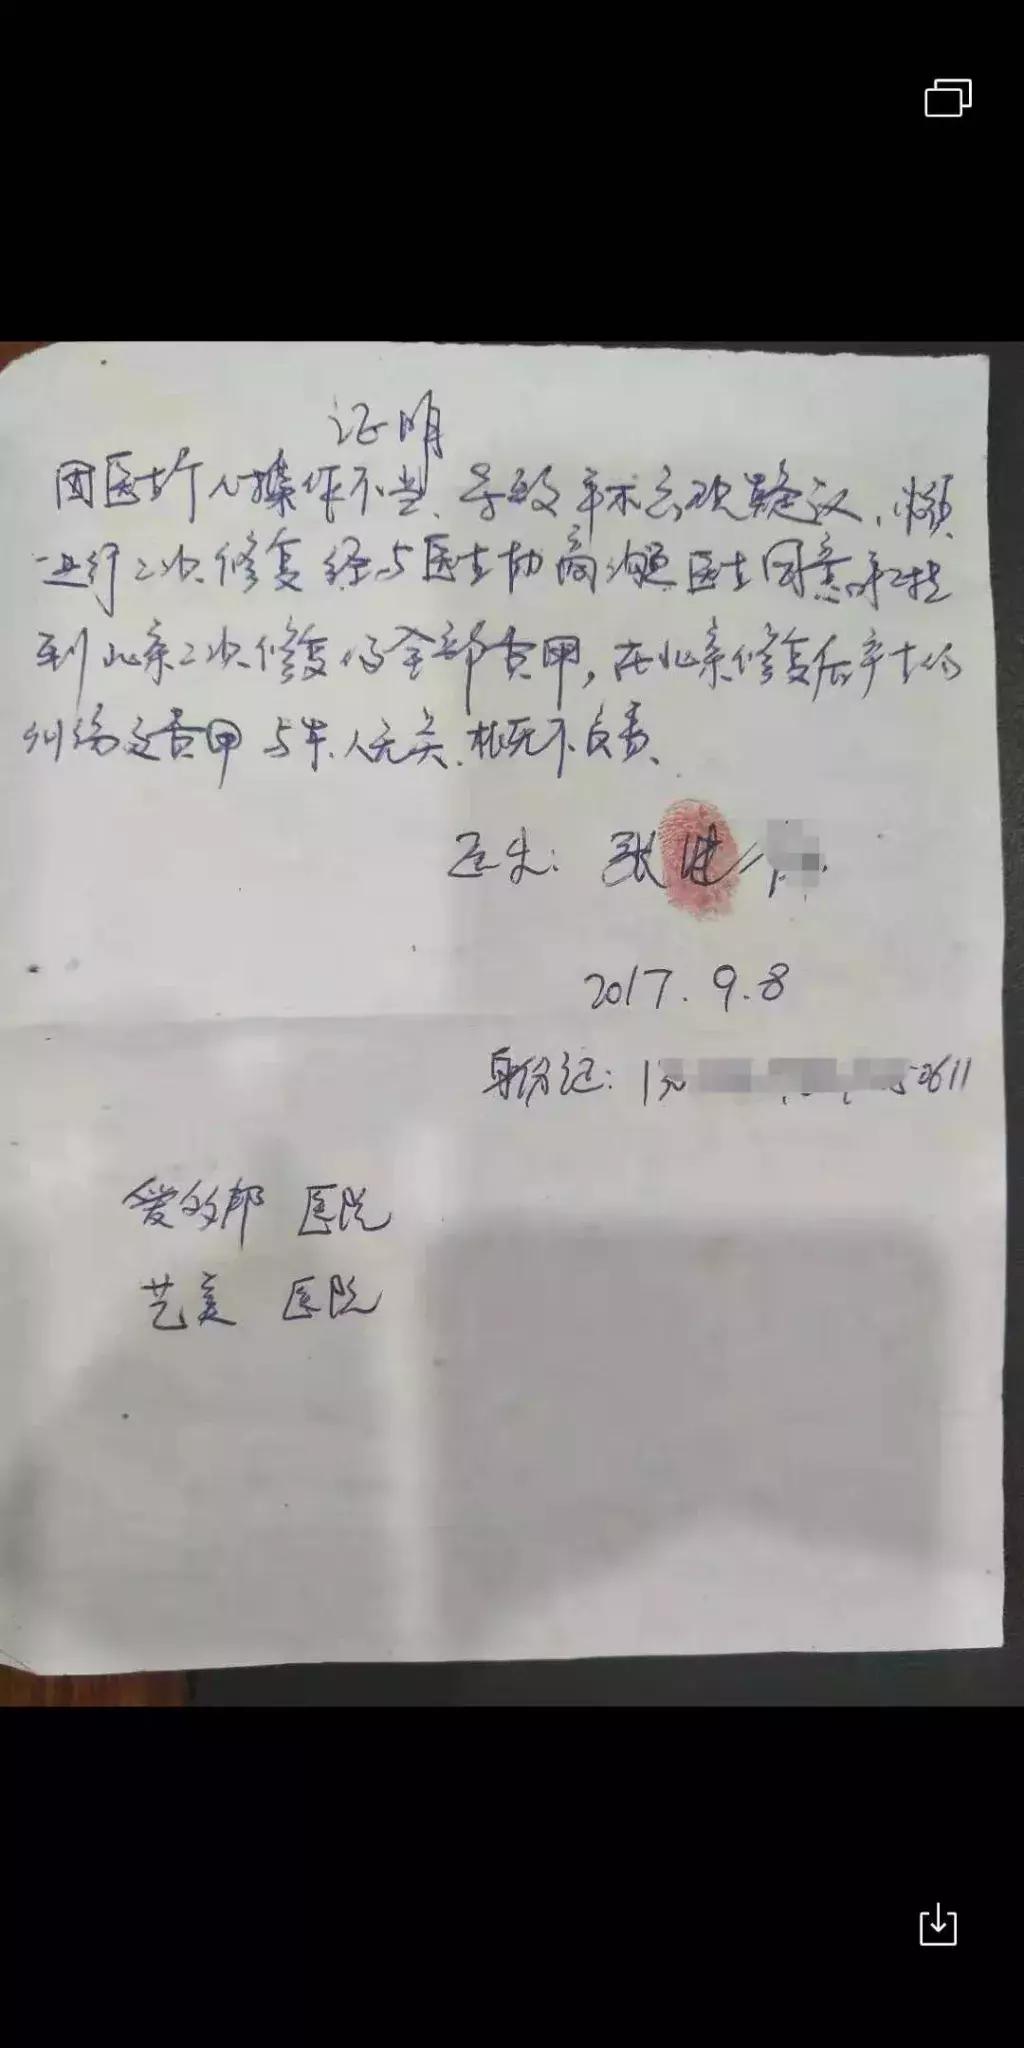 证明
因医生个人操作不当,导致手术出现疑议,须
进行二次修复经与医生协商 医生同意承担
到北京二次修复的全部费用,在北京修复后产生的
纠纷及费用与本人无关.概不负责、
医生: 张
2017.9.8
身份证: 0611
爱的邦 医院
艺美 医院